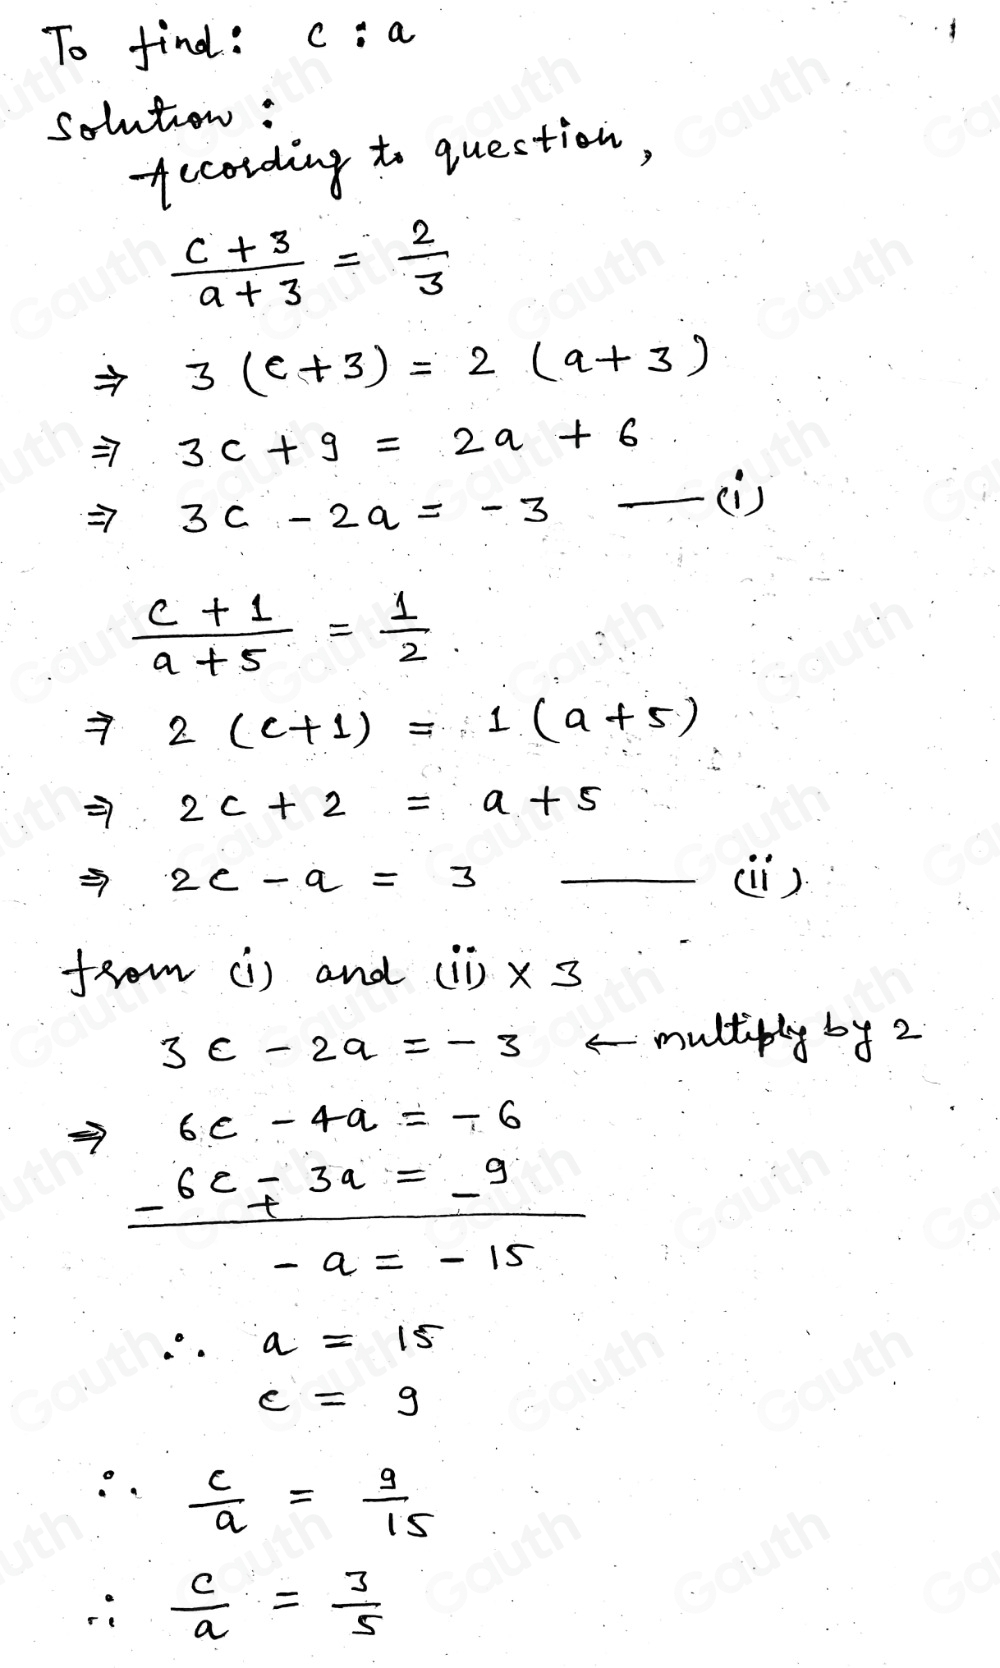 To find: c : a
Solution:
According to question,
c + 3 / a + 3 = 2 / 3
⇒ 3 (c + 3) = 2 (a + 3)
⇒ 3c + 9 = 2a + 6
⇒ 3c - 2a = -3 —— (i)
c + 1 / a + 5 = 1 / 2
⇒ 2 (c + 1) = 1 (a + 5)
⇒ 2c + 2 = a + 5
⇒ 2c - a = 3 —— (ii)
from (i) and (ii) × 3
3c - 2a = -3 ← multiply by 2
⇒ 6c - 4a = -6
6c - 3a = 9
- + -
- a = -15
∴ a = 15
c = 9
∴ c / a = 9 / 15
∴ c / a = 3 / 5